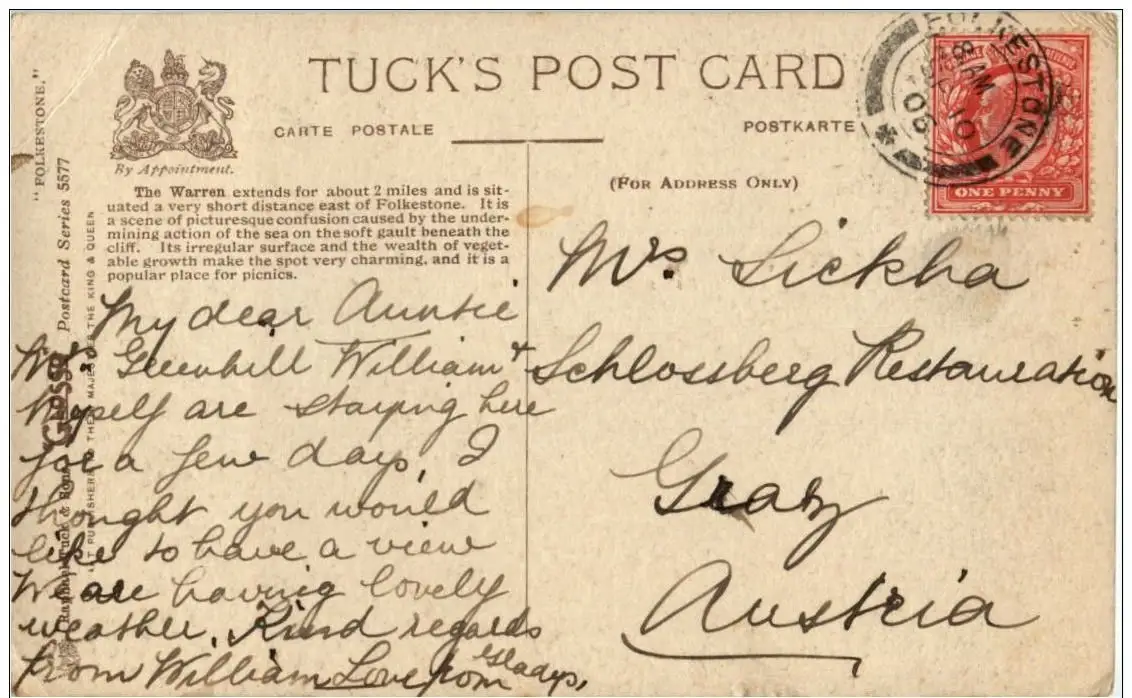 TUCK'S POST CARD
CARTE POSTALE
POSTKARTE
By Appointment.
(FOR ADDRESS ONLY)
The Warren extends for about 2 miles and is sit-
uated a very short distance east of Folkestone. It is
a scene of picturesque confusion caused by the under-
mining action of the sea on the soft gault beneath the
cliff. Its irregular surface and the wealth of veget-
able growth make the spot very charming, and it is a
popular place for picnics.
"FOLKESTONE."
Postcard Series 5577
Raphael Tuck & Sons
THE KING & QUEEN
FOLKESTONE
8 AM
10
06
ONE PENNY
My dear Auntie
Greenhill William +
Myself are staying here
for a few days, I
thought you would
like to have a view
We are having lovely
weather. Kind regards
from William Love from Gladys,
Mrs. Lickha
Schlossberg Restauration
Graz
Austria